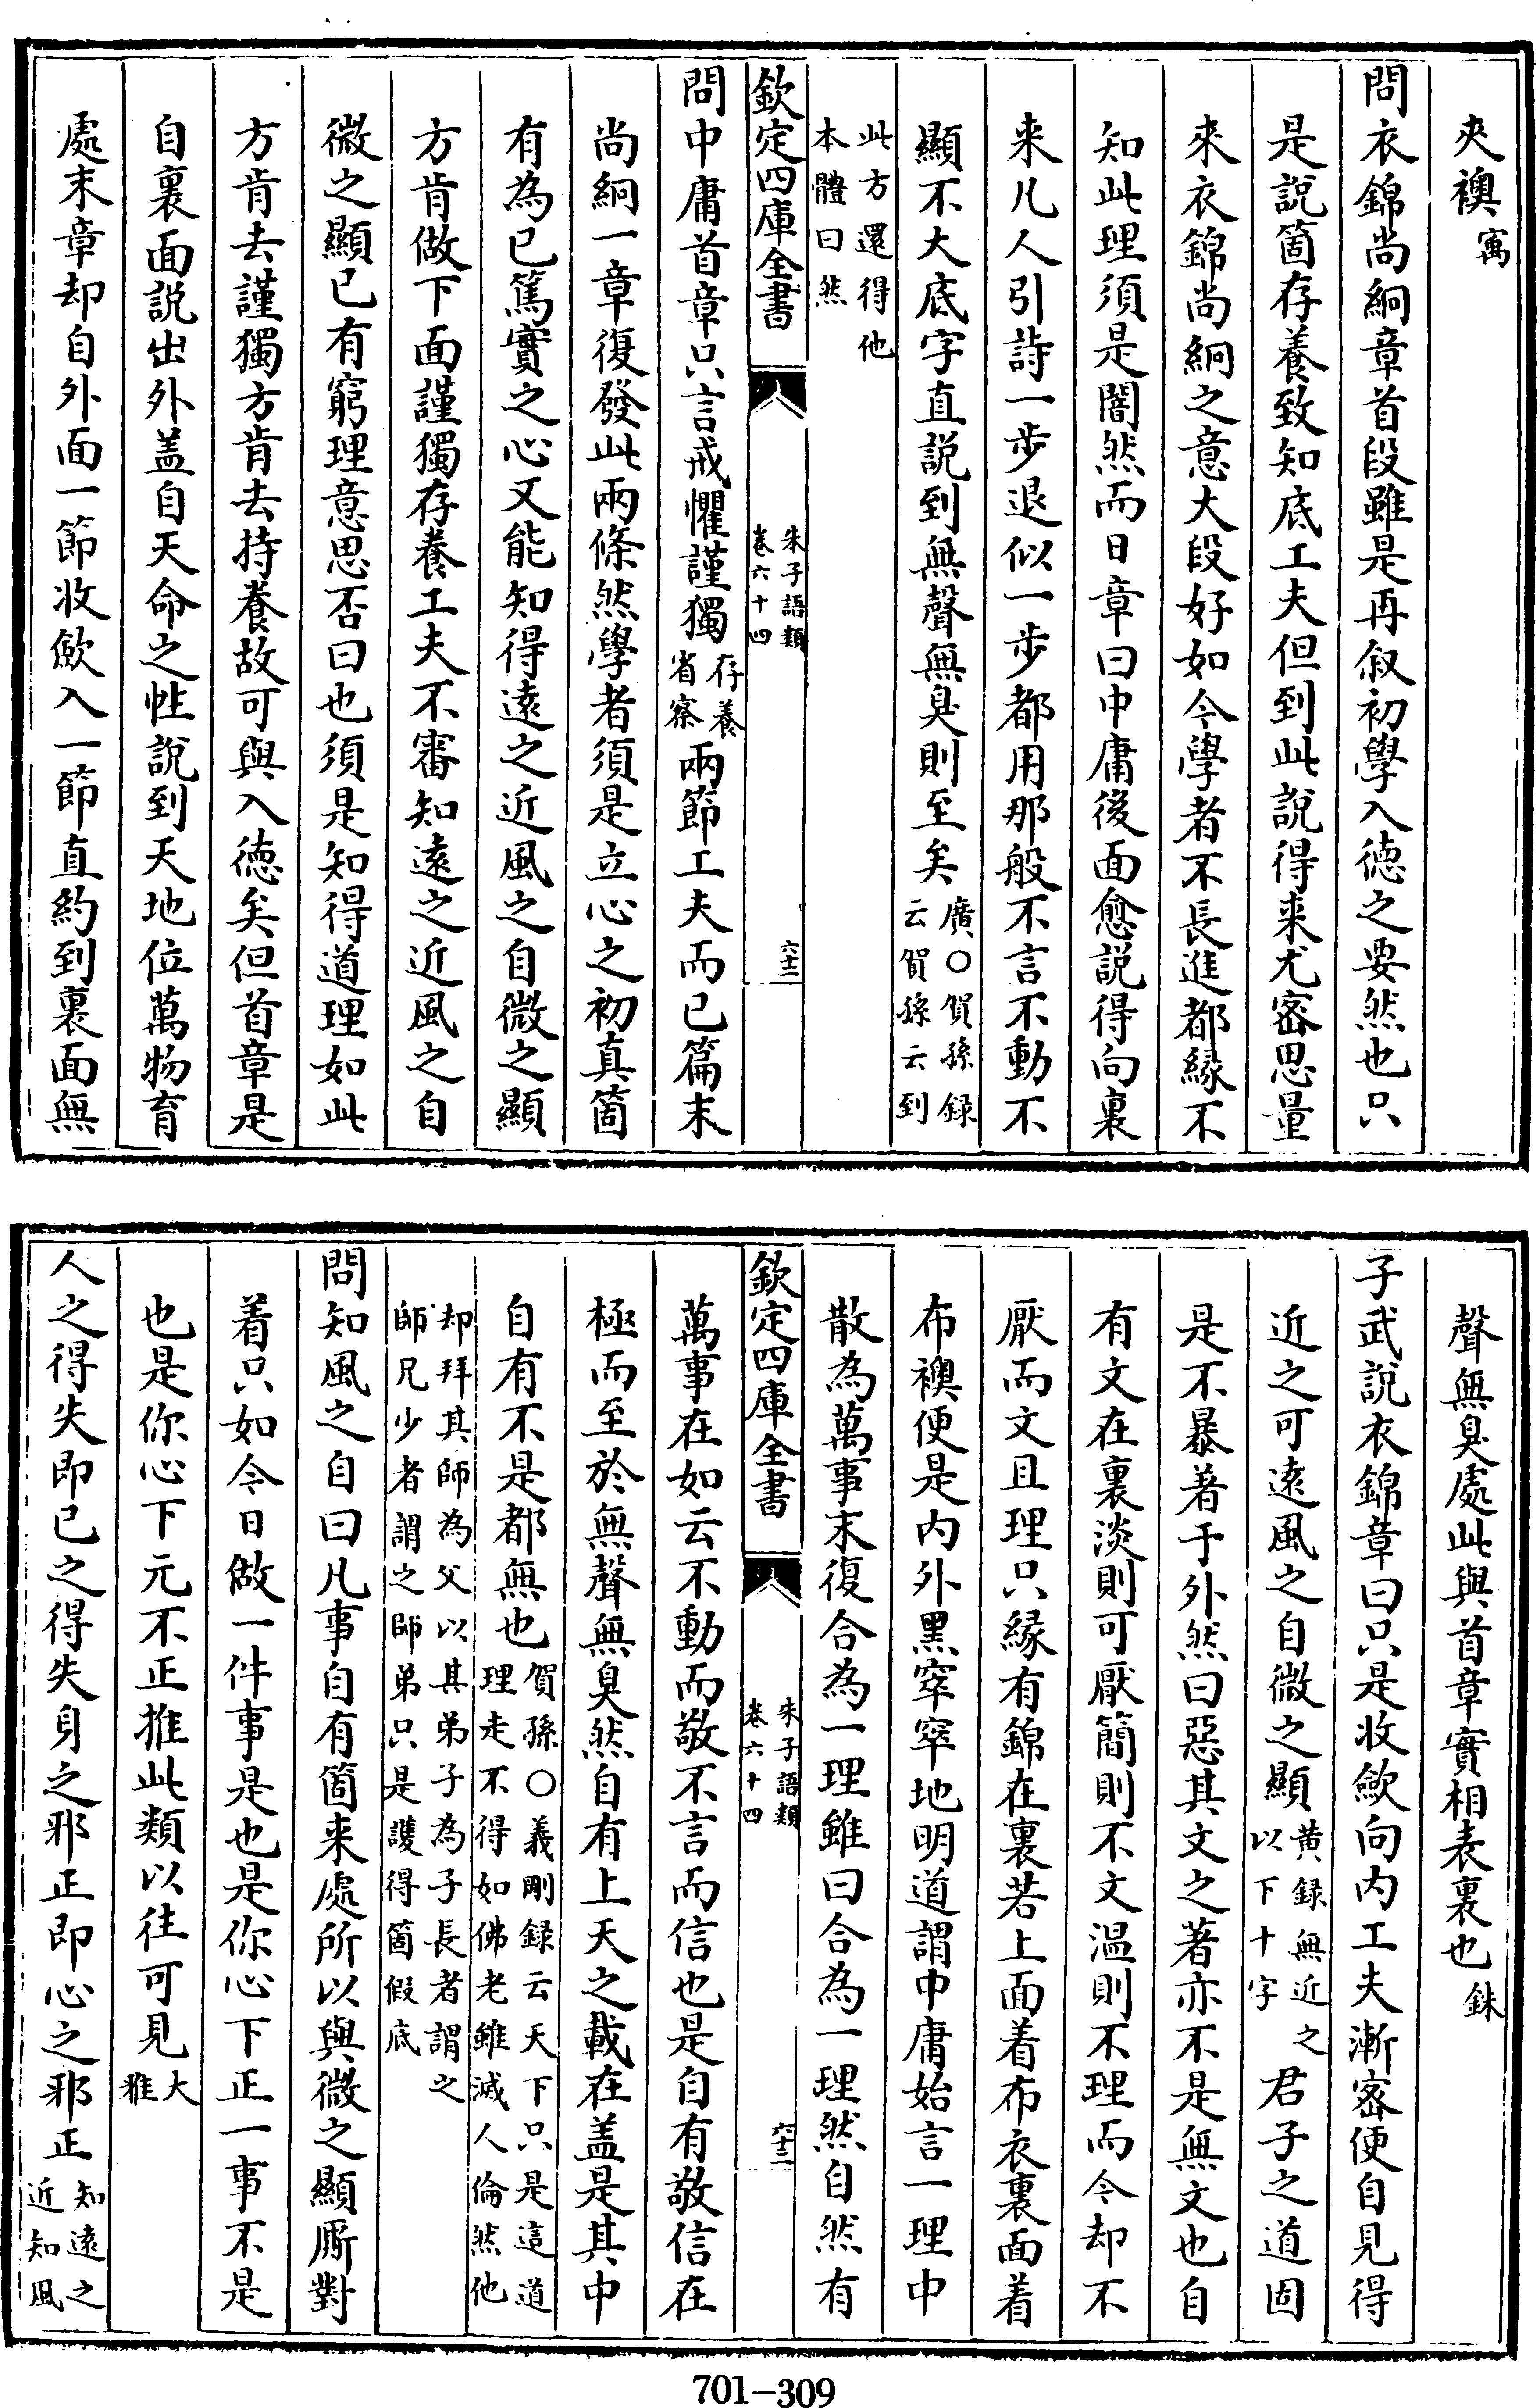 夾襖寓
問衣錦尚絅章首段雖是再叙初學入德之要然也只
是說箇存養致知底工夫但到此說得来尤密思量
來衣錦尚絅之意大段好如今學者不長進都縁不
知此理須是闇然而日章曰中庸後面愈說得向裏
来凡人引詩一步退似一步都用那般不言不動不
顯不大底字直說到無聲無臭則至矣廣〇賀孫録
云賀孫云到
此方還得他
本體曰然
欽定四庫全書
朱子語類
卷六十四
六十二
問中庸首章只言戒懼謹獨存養
省察兩節工夫而已篇末
尚絅一章復發此兩條然學者須是立心之初真箇
有為已篤實之心又能知得遠之近風之自微之顯
方肯做下面謹獨存養工夫不審知遠之近風之自
微之顯已有窮理意思否曰也須是知得道理如此
方肯去謹獨方肯去持養故可與入德矣但首章是
自裏面說出外盖自天命之性說到天地位萬物育
處末章却自外面一節收歛入一節直約到裏面無
聲無臭處此與首章實相表裏也銖
子武說衣錦章曰只是收歛向内工夫漸密便自見得
近之可遠風之自微之顯黄録無近之
以下十字君子之道固
是不暴著于外然曰惡其文之著亦不是無文也自
有文在裏淡則可厭簡則不文温則不理而今却不
厭而文且理只縁有錦在裏若上面着布衣裏面着
布襖便是内外黑窣窣地明道謂中庸始言一理中
散為萬事末復合為一理雖曰合為一理然自然有
欽定四庫全書
朱子語類
卷六十四
六十三
萬事在如云不動而敬不言而信也是自有敬信在
極而至於無聲無臭然自有上天之載在盖是其中
自有不是都無也賀孫〇義剛録云天下只是這道
理走不得如佛老雖滅人倫然他
却拜其師為父以其弟子為子長者謂之
師兄少者謂之師弟只是護得箇假底
問知風之自曰凡事自有箇来處所以與微之顯厮對
着只如今日做一件事是也是你心下正一事不是
也是你心下元不正推此類以往可見大
雅
人之得失即已之得失身之邪正即心之邪正知遠之
近知風
701-309